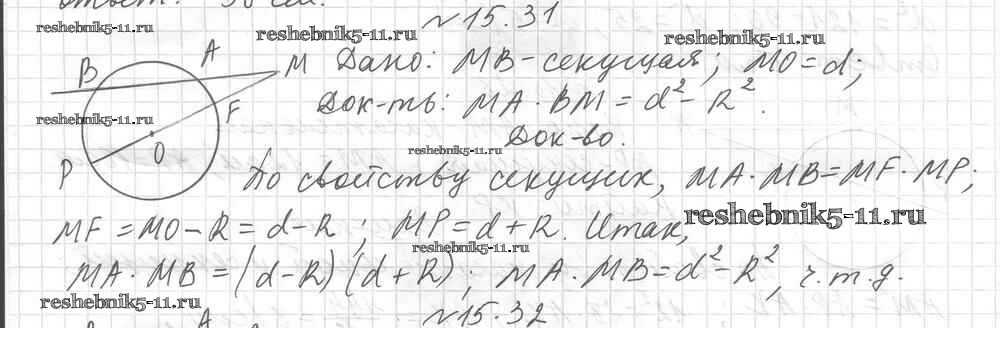 Ответ: 30 см.
№15.31
reshebnik5-11.ru reshebnik5-11.ru reshebnik5-11.ru
B A M Дано: MB-секущая; MO=d;
reshebnik5-11.ru F Док-ть: MA·BM=d²-R².
reshebnik5-11.ru Док-во.
P O По свойству секущих, MA·MB=MF·MP;
MF=MO-R=d-R; MP=d+R. Итак, reshebnik5-11.ru
reshebnik5-11.ru
MA·MB=(d-R)(d+R); MA·MB=d²-R², ч.т.д.
reshebnik5-11.ru №15.32
A